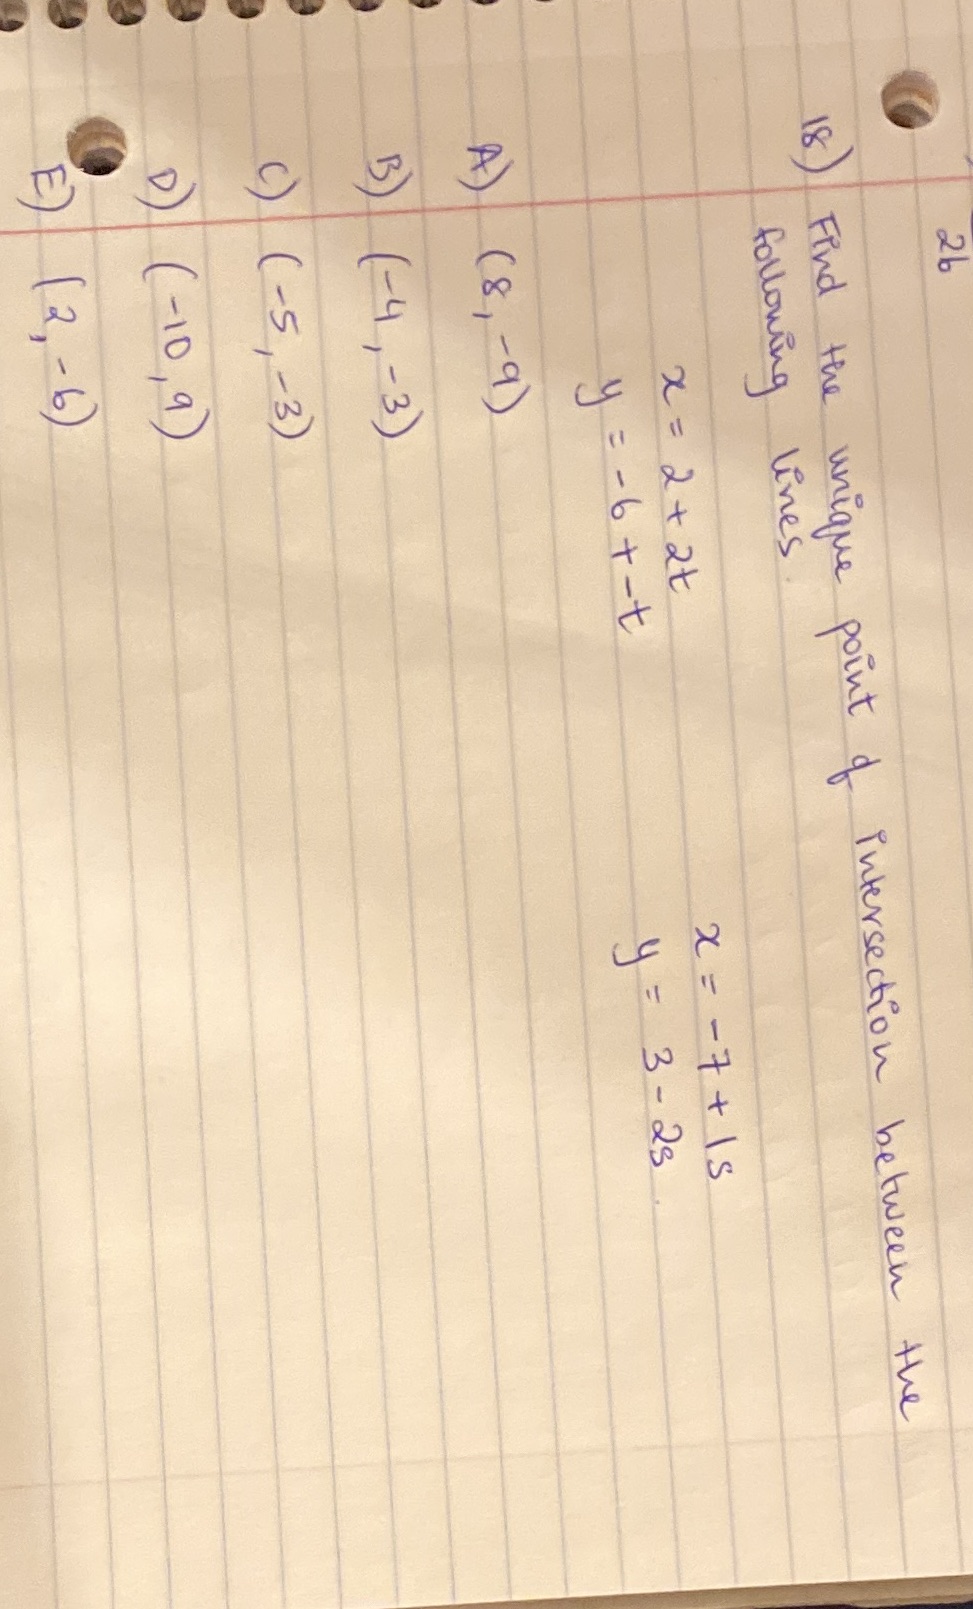 26
18) Find the unique point of intersection between the
following lines.
x = 2 + 2t x = -7 + 1s
y = -6 + -t y = 3 - 2s.
A) (8, -9)
B) (-4, -3)
C) (-5, -3)
D) (-10, 9)
E) (2, -6)